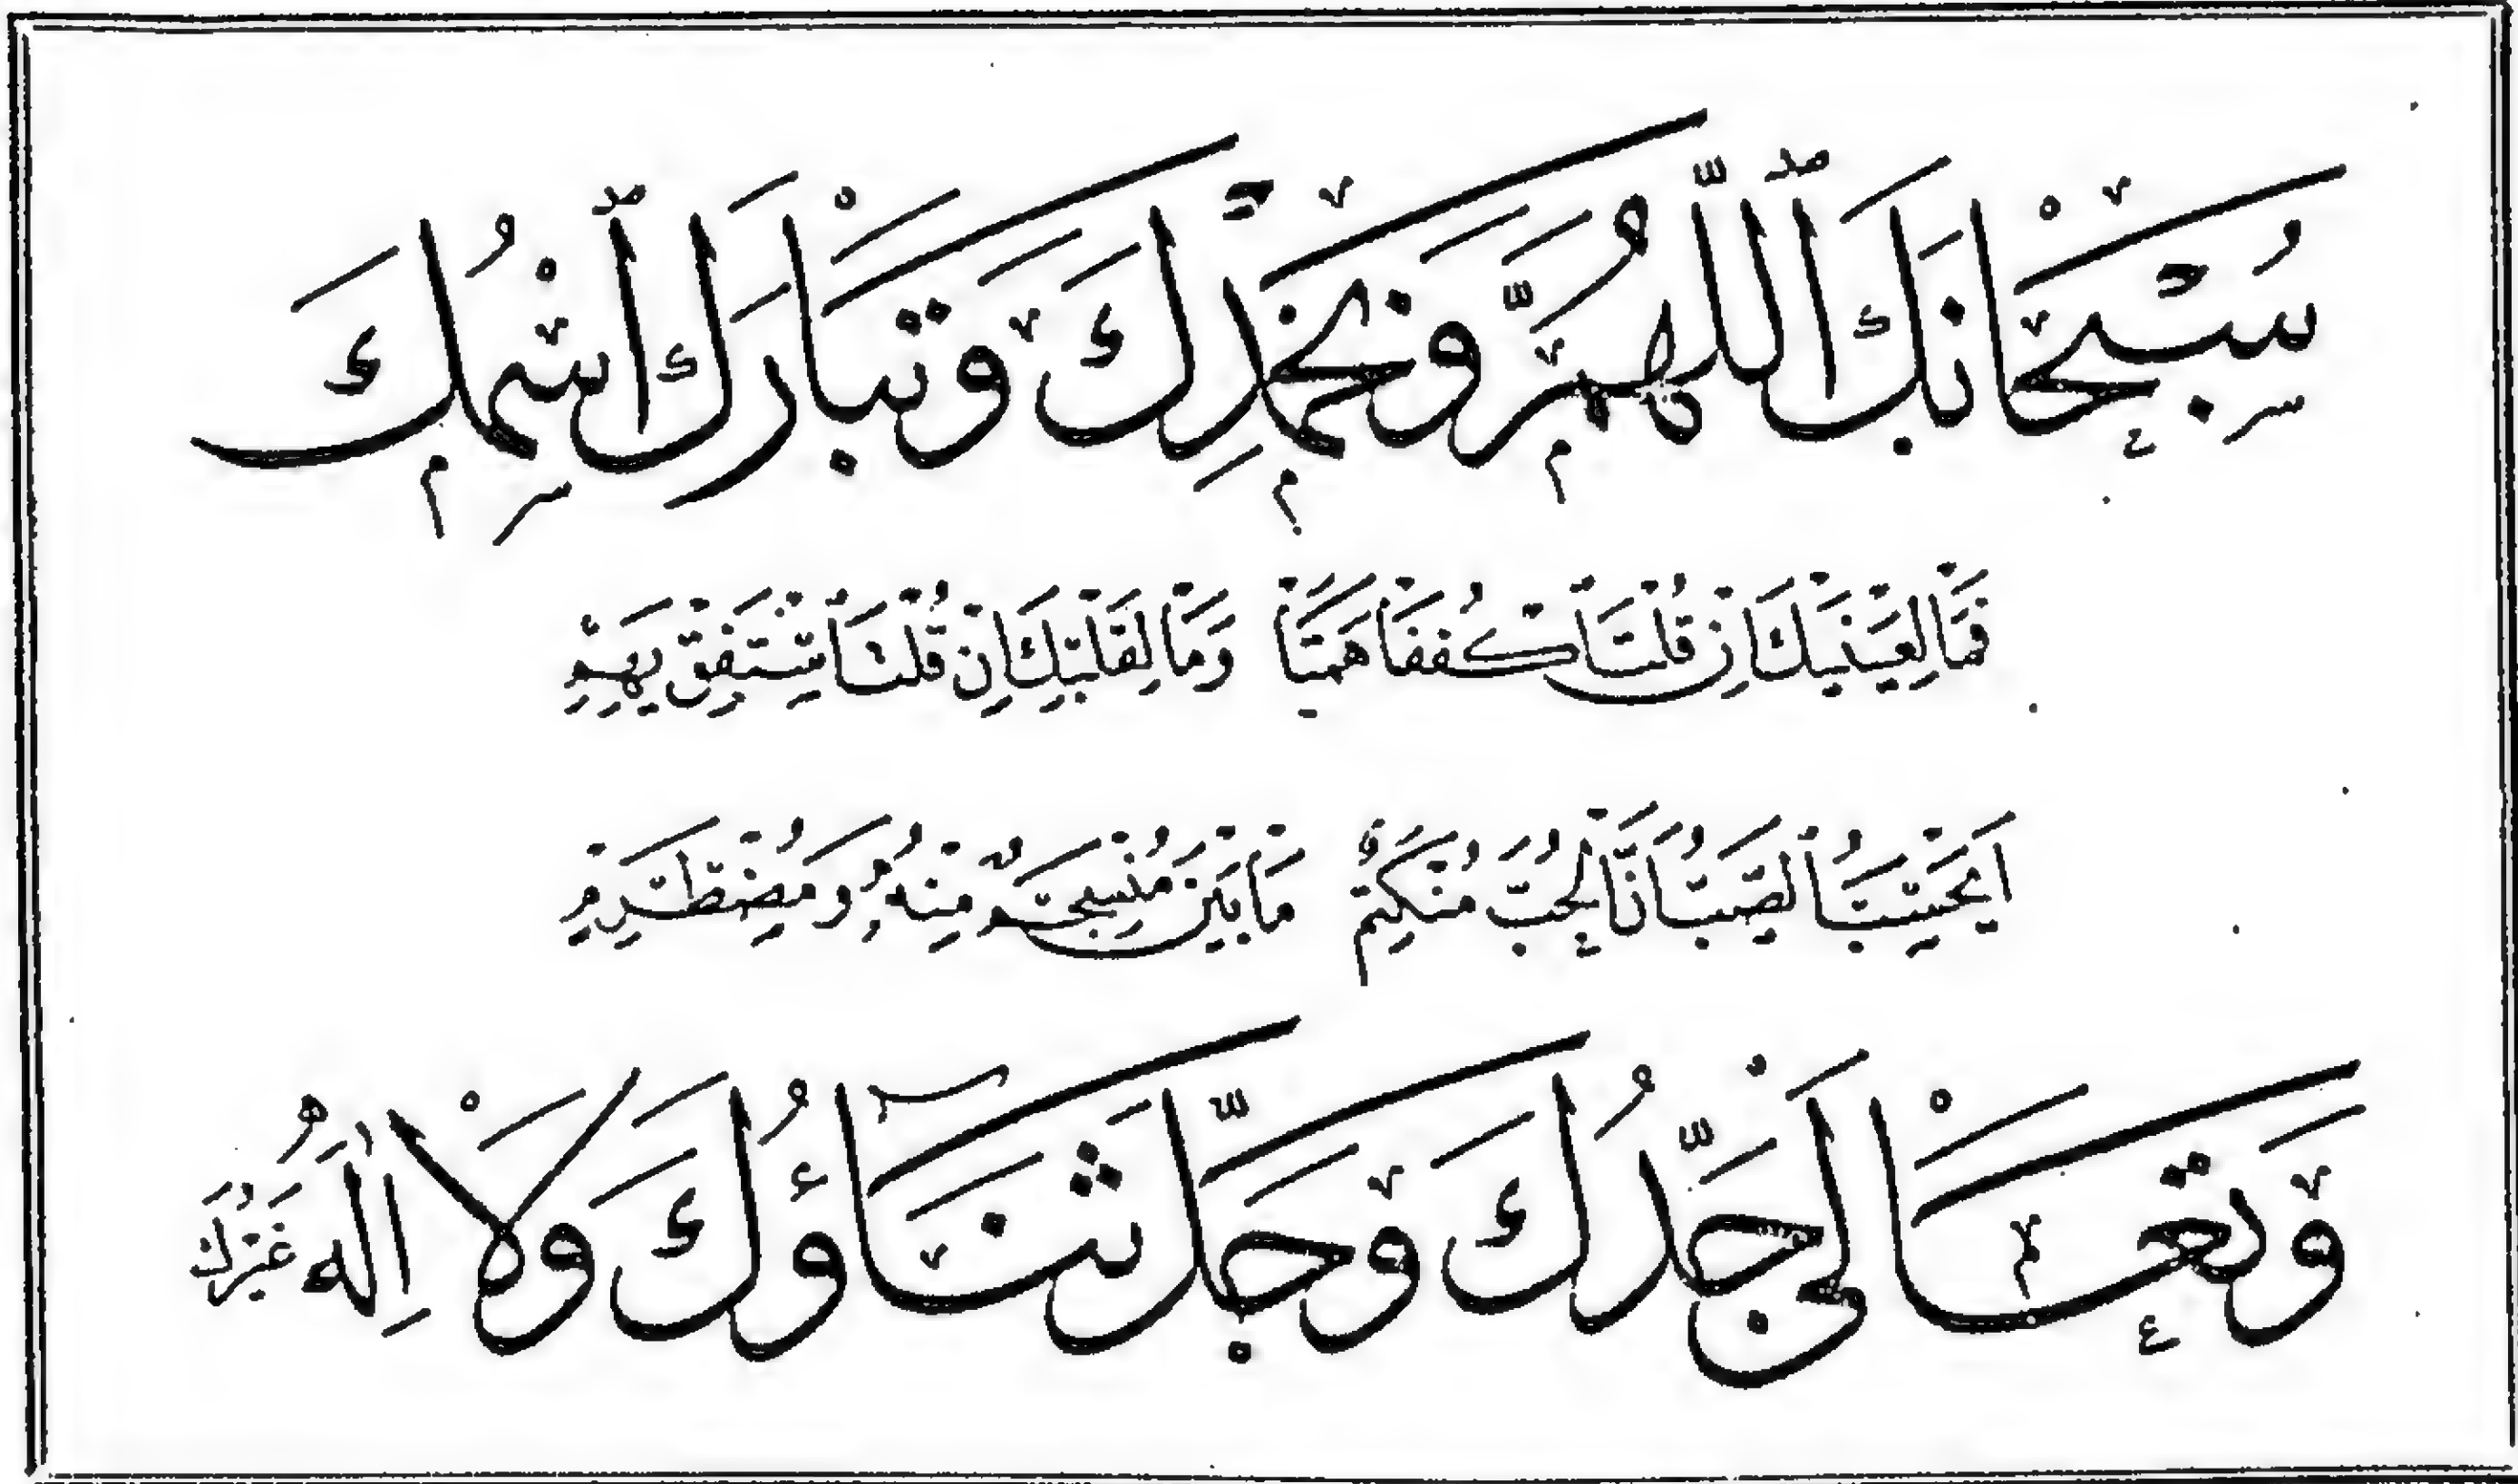 سُبْحَانَكَ اللّٰهُمَّ وَبِحَمْدِكَ وَتَبَارَكَ اسْمُكَ
فَمَا لِعَيْنَيْكَ اِنْ قُلْتَ اكْفُفَا هَمَتَا وَمَا لِقَلْبِكَ اِنْ قُلْتَ اسْتَفِقْ يَهِمِ
اَيَحْسَبُ الصَّبُّ اَنَّ الْحُبَّ مُنْكَتِمٌ مَا بَيْنَ مُنْسَجِمٍ مِنْهُ وَمُضْطَرِمِ
وَتَعَالَىٰ جَدُّكَ وَجَلَّ ثَنَاۤؤُكَ وَلَا اِلٰهَ غَيْرُكَ